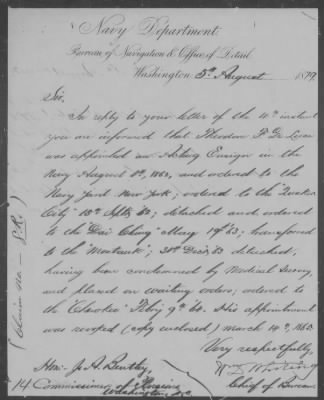 Navy Department.
Bureau of Navigation & Office of Detail
Washington 5th August 1879
Sir,
In reply to your letter of the 4th instant
you are informed that Theodore F. De Luce
was appointed an Acting Ensign in the
Navy August 8th, 1862, and ordered to the
Navy Yard New York; ordered to the "Quaker
City" 18th Sept, 62; detached and ordered
to the "Dai Ching" May 19th 63; transferred
to the "Montauk"; 31st Decr, 63 detached,
having been condemned by Medical Survey,
and placed on waiting orders; ordered to
the "Cherokee" Feby 9th 64. His appointment
was revoked (copy enclosed) March 14th, 1865.
Very respectfully,
W D Whiting
Chief of Bureau
Hon. J. A. Bentley,
Commissioner of Pensions
Washington D.C.
14
(Claim No. —